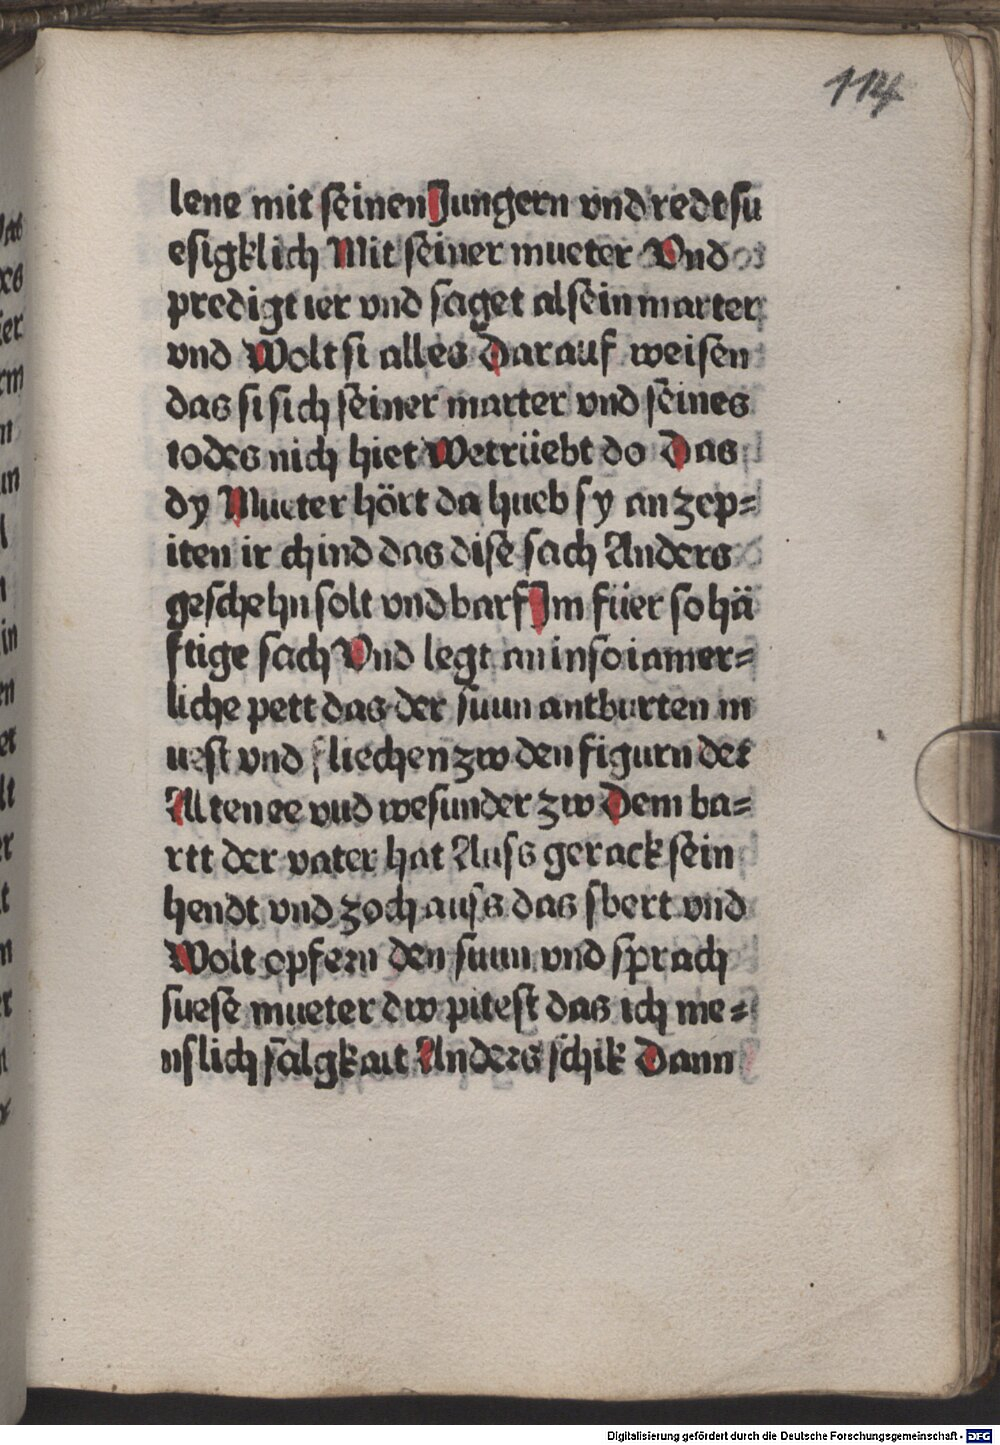 114
lene mit seinen Jungern vnd redt su
esigklich Mit seiner mueter Vnd
predigt ier vnd saget al sein marter
vnd Wolt si alles Darauf weisen
das si sich seiner marter vnd seines
todes nich hiet Wetrüebt do Das
dy Mueter hört da hueb sy an zep=
iten ir chind das dise sach Anders
geschehn solt vnd barf Jm füer so hä
ftige sach Vnd legt an in so iamer=
liche pett das der suun antburten in
uest vnd fliechen zw den figurn der
Alten ee vnd wesunder zw Dem ba=
rtt der vater hat Auss gerackt sein
hendt vnd zoch auss das sbert vnd
Wolt opfern den suun vnd sprach
suese mueter dw pitest das ich me=
nslich sälgkait Anders schik Dann
Digitalisierung gefördert durch die Deutsche Forschungsgemeinschaft - DFG